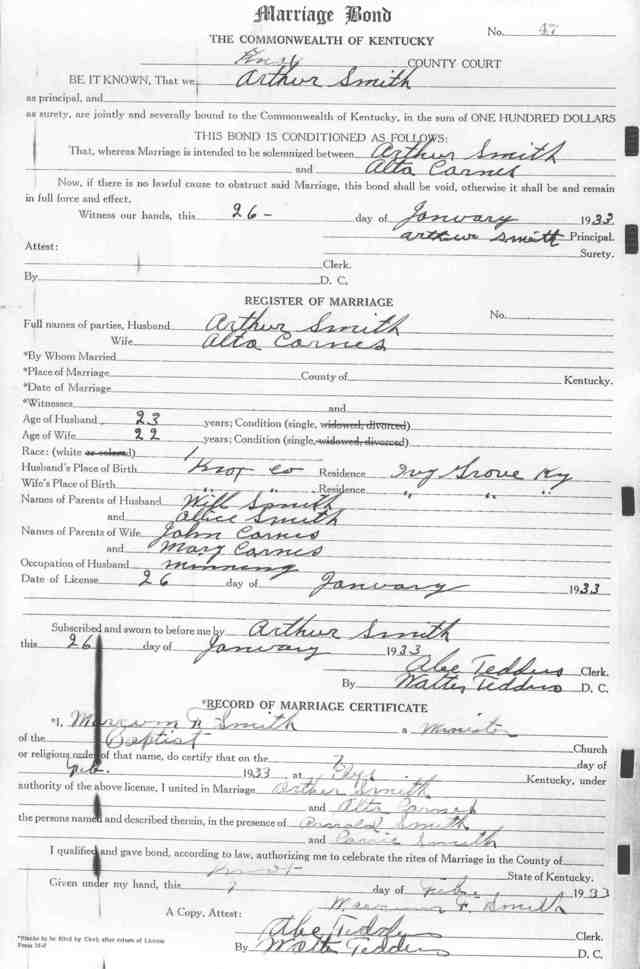 Marriage Bond
No. 47
THE COMMONWEALTH OF KENTUCKY
Knox COUNTY COURT
BE IT KNOWN, That we Arthur Smith
as principal, and
as surety, are jointly and severally bound to the Commonwealth of Kentucky, in the sum of ONE HUNDRED DOLLARS
THIS BOND IS CONDITIONED AS FOLLOWS:
That, whereas Marriage is intended to be solemnized between Arthur Smith
and Alta Carnes
Now, if there is no lawful cause to obstruct said Marriage, this bond shall be void, otherwise it shall be and remain
in full force and effect.
Witness our hands, this 26- day of January 1933
arthur smith Principal.
Surety.
Attest:
Clerk.
By D. C.
REGISTER OF MARRIAGE
No.
Full names of parties, Husband Arthur Smith
Wife Alta Carnes
*By Whom Married
*Place of Marriage County of Kentucky.
*Date of Marriage
*Witnesses and
Age of Husband 23 years; Condition (single, widowed, divorced)
Age of Wife 22 years; Condition (single, widowed, divorced)
Race: (white or colored)
Husband's Place of Birth Knox Co Residence Ivy Grove Ky
Wife's Place of Birth " " Residence " " "
Names of Parents of Husband Will Smith
and Allice Smith
Names of Parents of Wife John Carnes
and Mary Carnes
Occupation of Husband minning
Date of License 26 day of January 1933
Subscribed and sworn to before me by Arthur Smith
this 26 day of January 1933
Abe Tedders Clerk.
By Walter Tedders D. C.
*RECORD OF MARRIAGE CERTIFICATE
*I, F Smith a Minister
of the Baptist Church
or religious order of that name, do certify that on the 7 day of
Feb. 1933 at Kentucky, under
authority of the above license, I united in Marriage Arthur Smith
and Alta Carnes
the persons named and described therein, in the presence of Smith
and Carrie Smith
I qualified and gave bond, according to law, authorizing me to celebrate the rites of Marriage in the County of
State of Kentucky.
Given under my hand, this 7 day of Feb 1933
F. Smith
A Copy, Attest:
Abe Tedders Clerk.
By Walter Tedders D. C.
*Blanks to be filled by Clerk after return of License